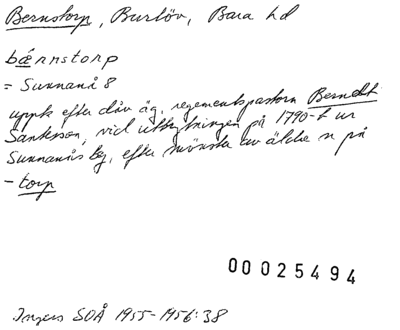 Bernstorp, Burlöv, Bara hd
bǽrnstorp
= Sunnanå 8
uppk efter dåv äg. regementspastorn Berndt
vid utbrytningen på 1790-t ur
Sunnanås by, efter mönster av äldre n på
- torp
00025494
Ingers SOÅ 1955-1956:38